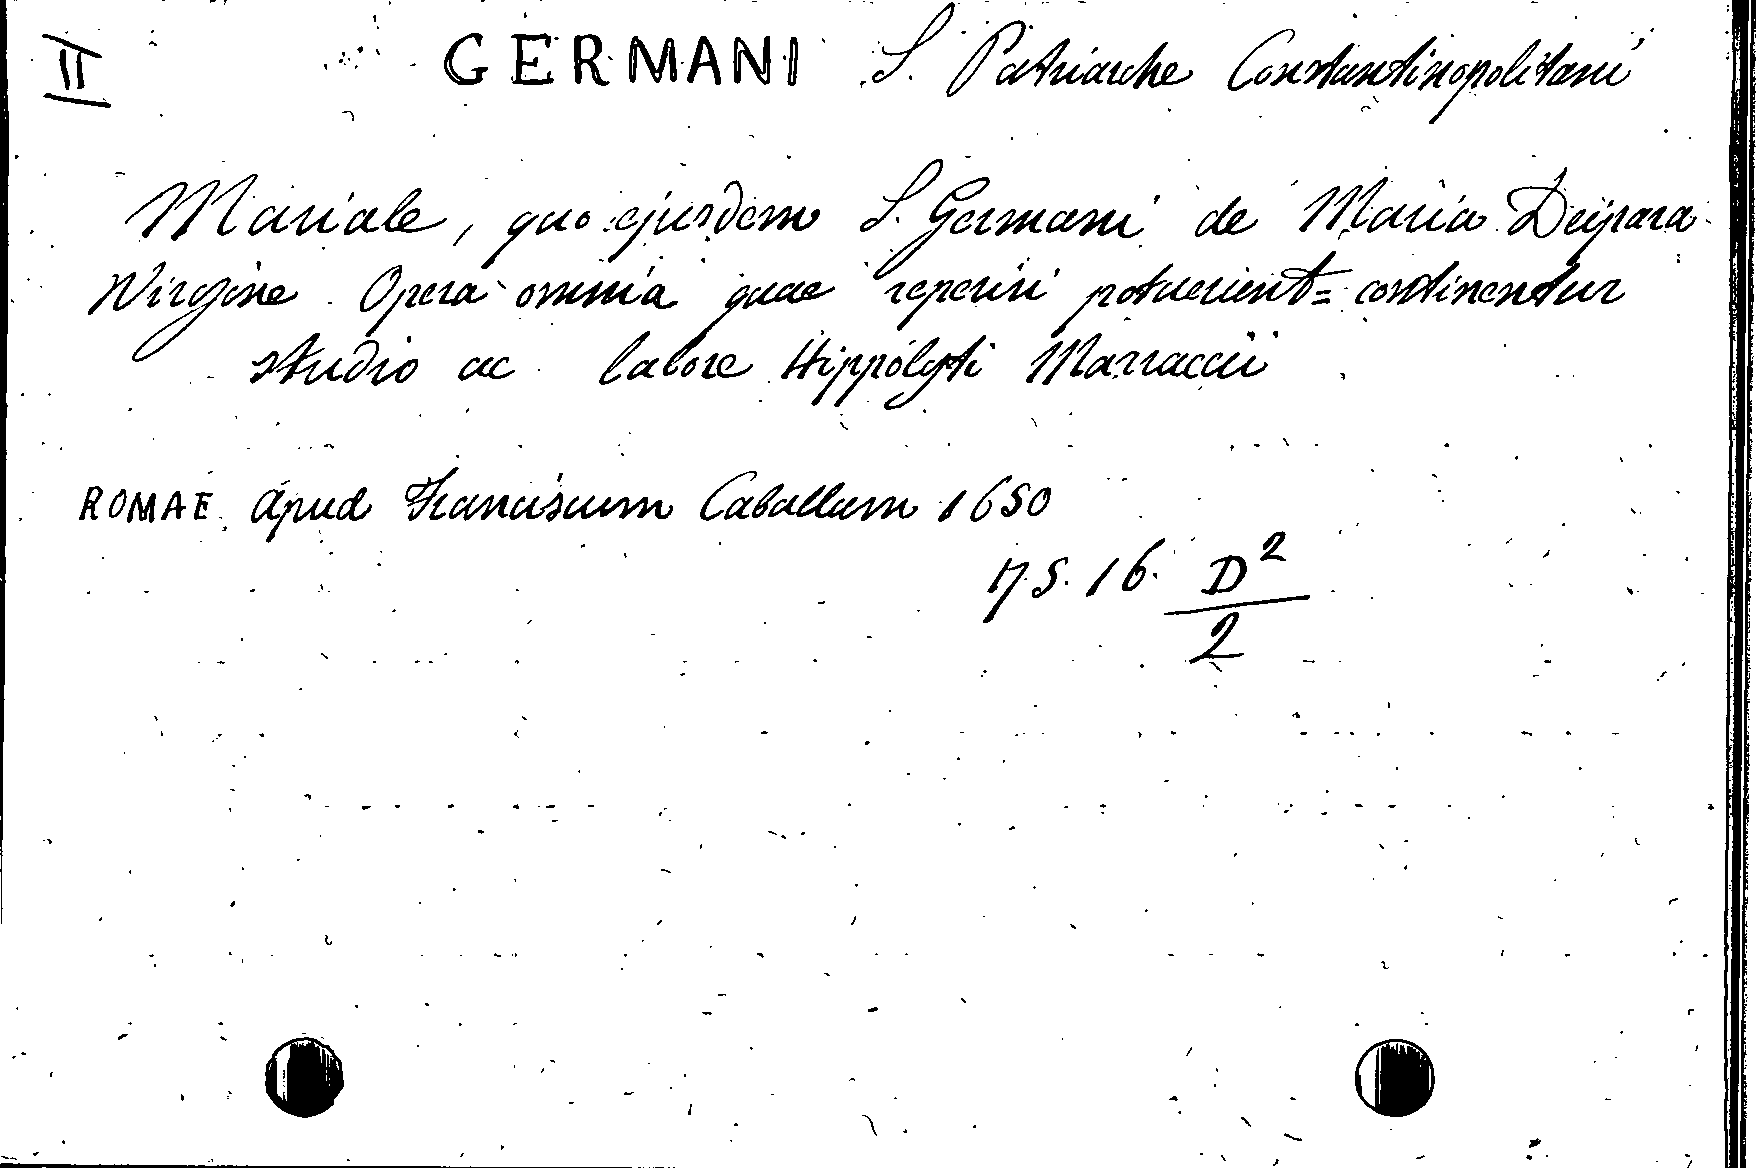 II GERMANI S. Patriarche Constantinopolitani
Mariale, quo ejusdem S. Germani de Maria Deipara
Virgine Opera omnia quae reperiri potuerient= continentur
studio ac labore Hippolyti Marraccii
ROMAE apud Franciscum Caballum 1650
17.5.16. D²
2